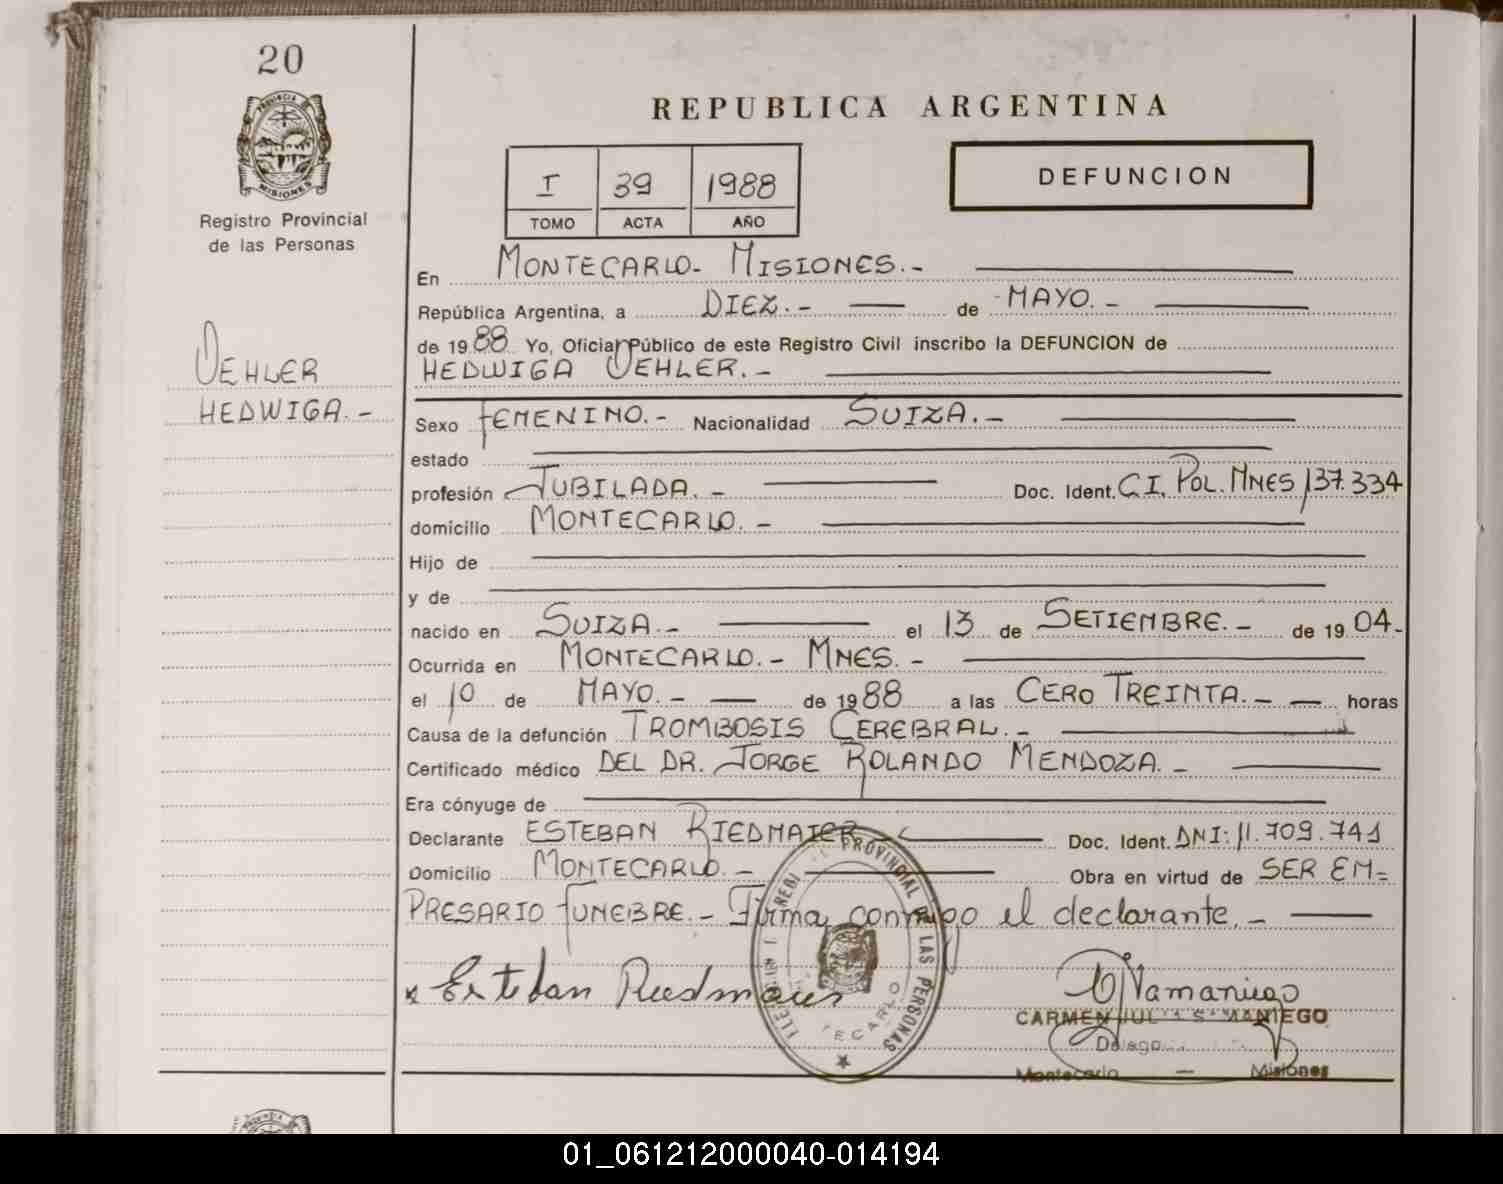 20
PROVINCIA DE
MISIONES
Registro Provincial
de las Personas
OEHLER
HEDWIGA.-
REPUBLICA ARGENTINA
I 39 1988
TOMO ACTA AÑO
DEFUNCION
En MONTECARLO- MISIONES.-
República Argentina, a DIEZ.- de MAYO.-
de 1988 Yo, Oficial Público de este Registro Civil inscribo la DEFUNCION de
HEDWIGA OEHLER.-
Sexo FEMENINO.- Nacionalidad SUIZA.-
estado
profesión JUBILADA.- Doc. Ident. C.I. POL. MNES 137.334
domicilio MONTECARLO.-
Hijo de
y de
nacido en SUIZA.- el 13 de SETIEMBRE.- de 1904.-
Ocurrida en MONTECARLO.- MNES.-
el 10 de MAYO.- de 1988 a las CERO TREINTA.- horas
Causa de la defunción TROMBOSIS CEREBRAL.-
Certificado médico DEL DR. JORGE ROLANDO MENDOZA.-
Era cónyuge de
Declarante ESTEBAN RIEDMAIER Doc. Ident. DNI: 11.709.741
Domicilio MONTECARLO.- Obra en virtud de SER EM=
PRESARIO FUNEBRE.- Firma conmigo el declarante.-
x Esteban Riedmaier
PROVINCIAL DE LAS PERSONAS
CARMEN JULIA SAMANIEGO
Montecarlo - Misiones
01_061212000040-014194